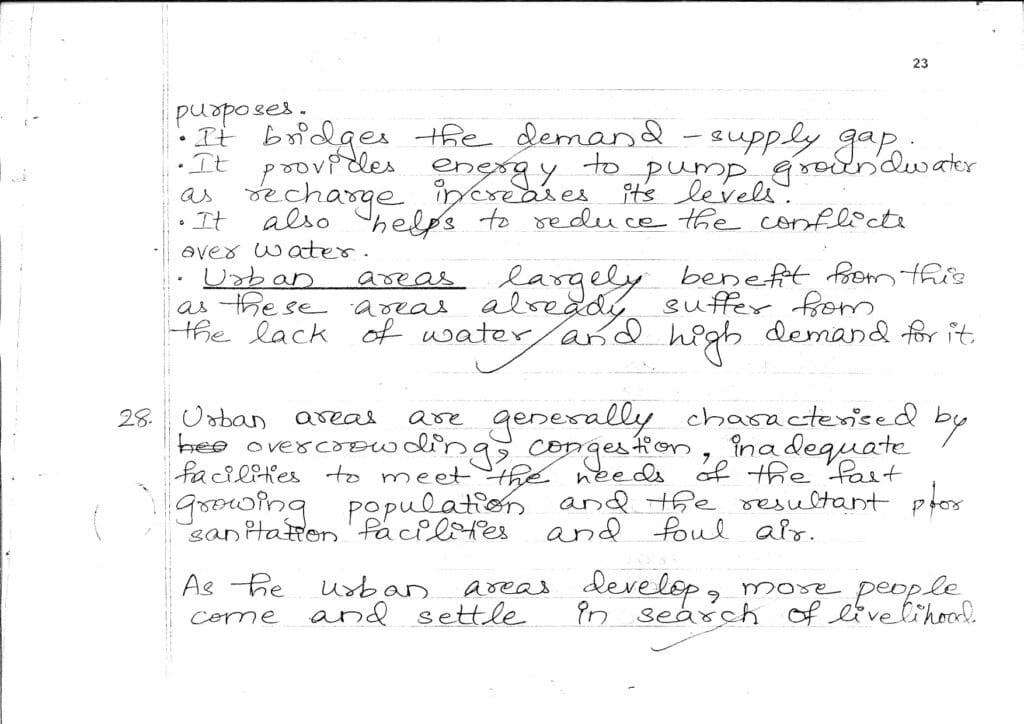 23
purposes.
• It bridges the demand - supply gap.
• It provides energy to pump groundwater
as recharge increases its levels.
• It also helps to reduce the conflicts
over water.
• Urban areas largely benefit from this
as these areas already suffer from
the lack of water and high demand for it.
28. Urban areas are generally characterised by
overcrowding, congestion, inadequate
facilities to meet the needs of the fast
growing population and the resultant poor
sanitation facilities and foul air.
As the urban areas develop, more people
come and settle in search of livelihood.